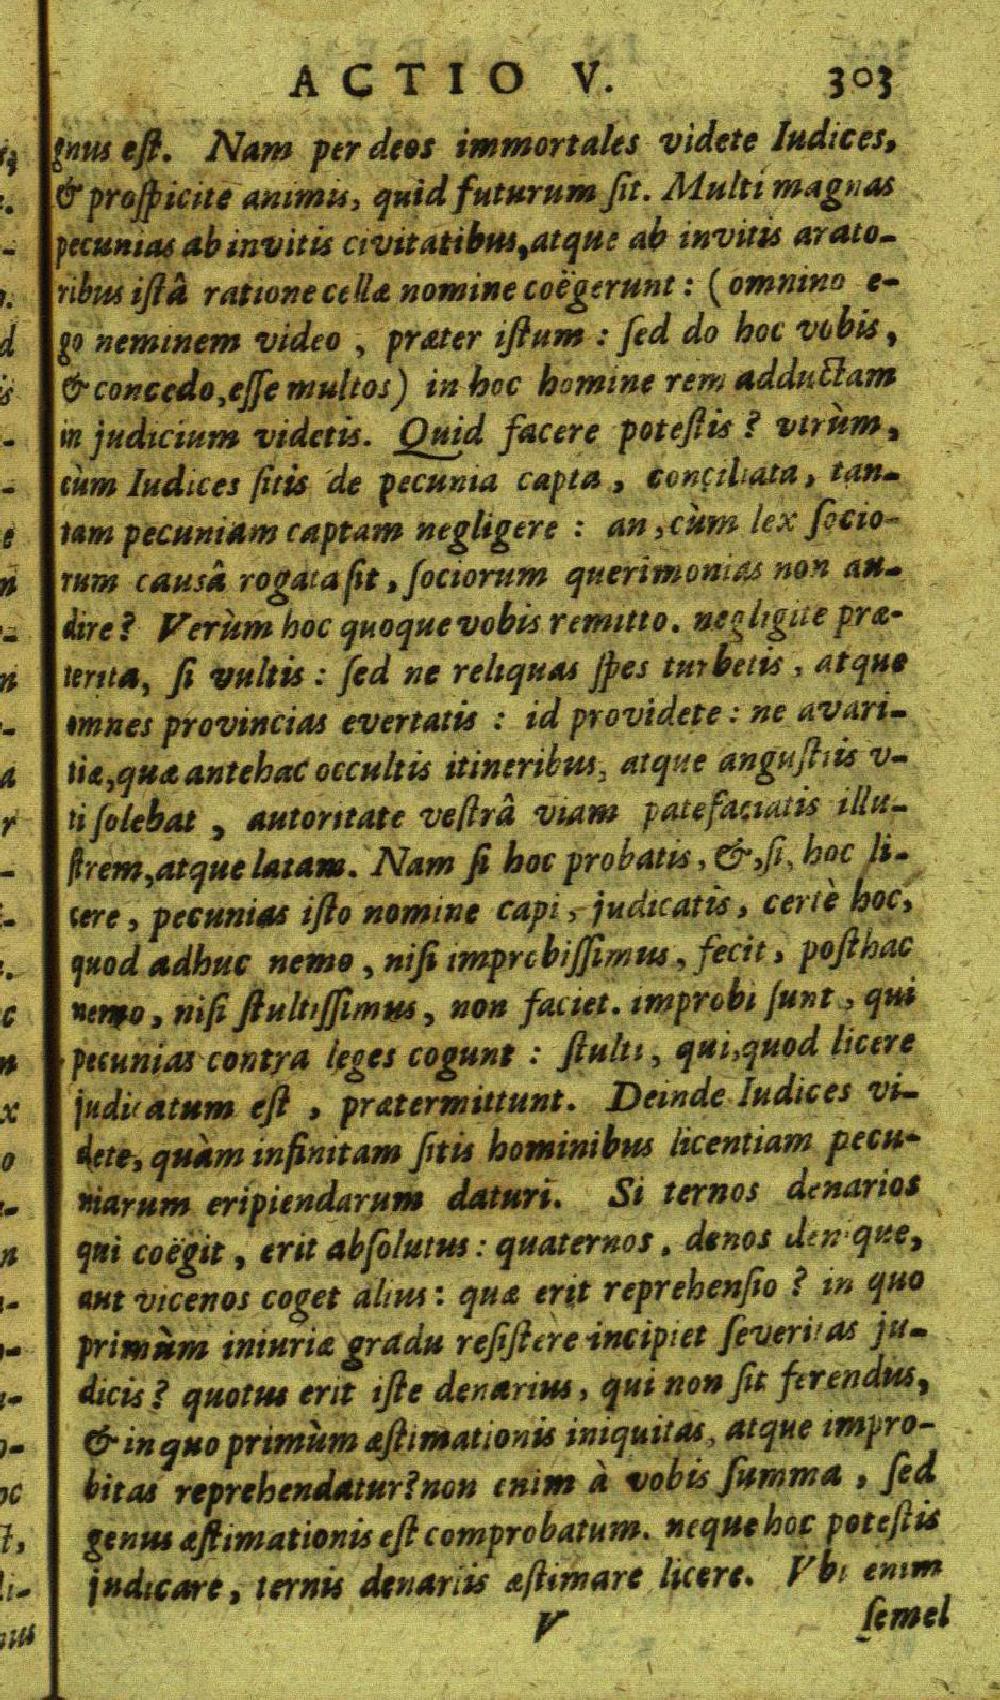 ACTIO V. 303
gnus eſt. Nam per deos immortales videte Iudices,
& proſpicite animis, quid futurum ſit. Multi magnas
pecunias ab invitis civitatibus, atque ab invitis arato-
ribus iſtâ ratione cellæ nomine coëgerunt: (omnino e-
go neminem video, præter iſtum: ſed do hoc vobis,
& concedo, eſſe multos) in hoc homine rem adductam
in judicium videtis. Quid facere poteſtis? vtrùm,
cùm Iudices ſitis de pecunia capta, conçiliata, tan-
tam pecuniam captam negligere: an, cùm lex ſocio-
rum causâ rogata ſit, ſociorum querimonias non au-
dire? Verùm hoc quoque vobis remitto. negligite præ-
terita, ſi vultis: ſed ne reliquas ſpes turbetis, atque
omnes provincias evertatis: id providete: ne avari-
tiæ, quæ antehac occultis itineribus, atque anguſtiis v-
ti ſolebat, autoritate veſtrâ viam patefaciatis illu-
ſtrem, atque latam. Nam ſi hoc probatis, &, ſi, hoc li-
cere, pecunias iſto nomine capi, judicatis, certè hoc,
quod adhuc nemo, niſi improbiſſimus, fecit, poſthac
nemo, niſi ſtultiſſimus, non faciet. improbi ſunt, qui
pecunias contra leges cogunt: ſtulti, qui, quod licere
judicatum eſt, prætermittunt. Deinde Iudices vi-
dete, quàm infinitam ſitis hominibus licentiam pecu-
niarum eripiendarum daturi. Si ternos denarios
qui coëgit, erit abſolutus: quaternos, denos denique,
aut vicenos coget alius: quæ erit reprehenſio? in quo
primùm iniuriæ gradu reſiſtere incipiet ſeveritas ju-
dicis? quotus erit iſte denarius, qui non ſit ferendus,
& in quo primùm æſtimationis iniquitas, atque impro-
bitas reprehendatur? non enim à vobis ſumma, ſed
genus æſtimationis eſt comprobatum. neque hoc poteſtis
judicare, ternis denariis æſtimare licere. Vbi enim
V ſemel